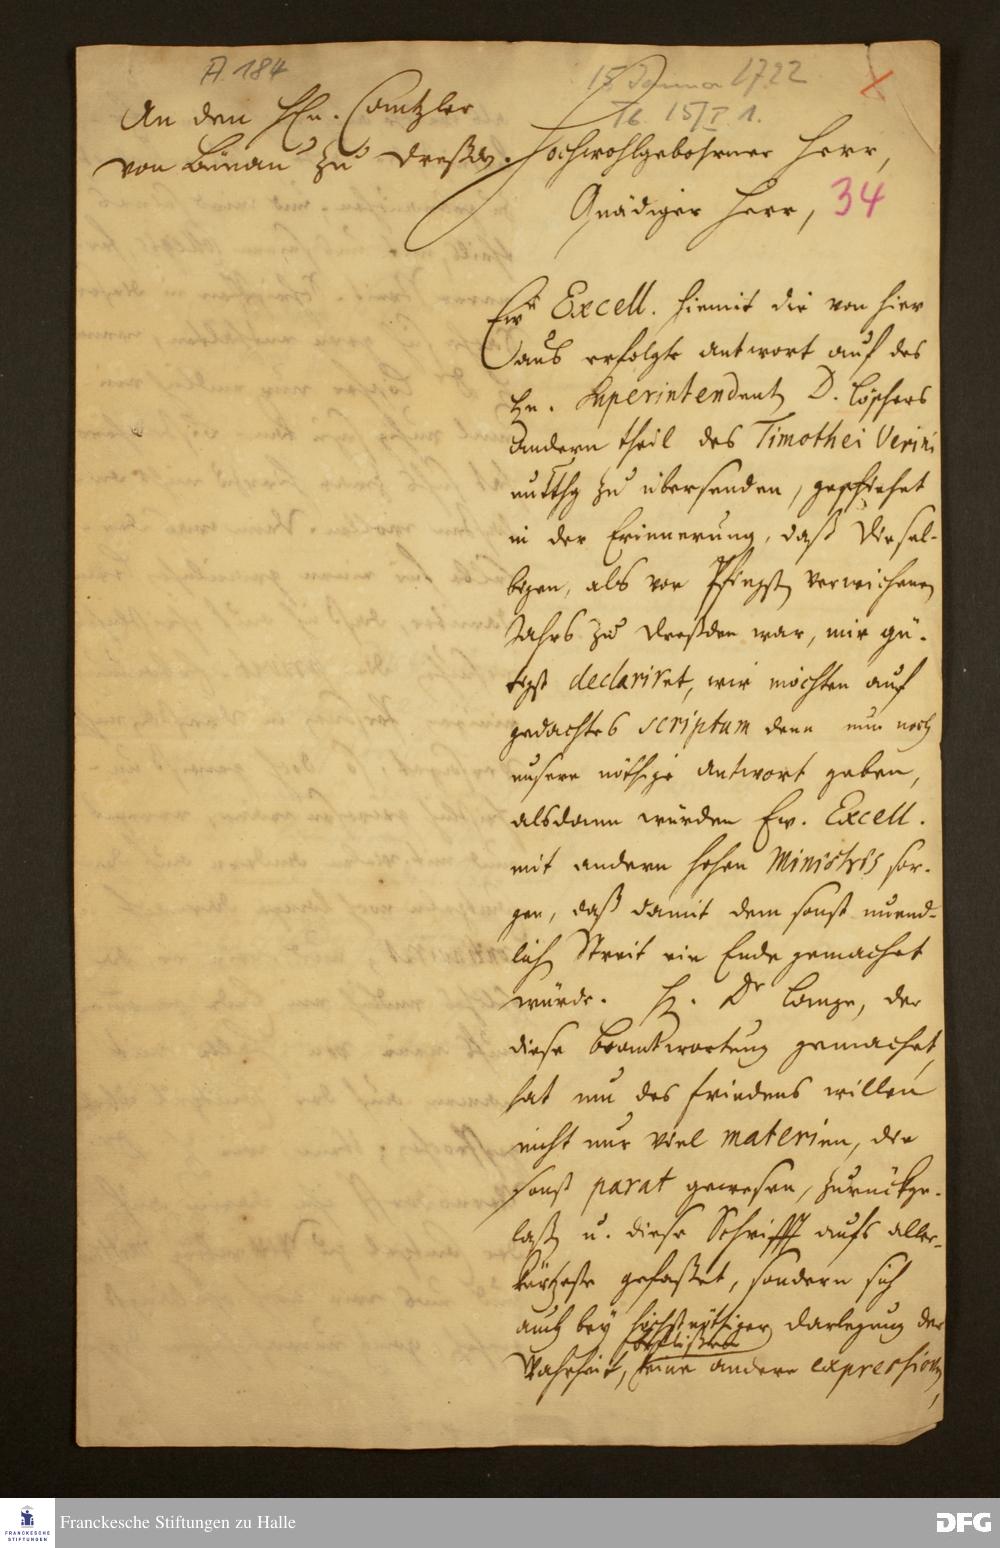 A. 184
15. Januar 1722
Tb. 15/I. 1.
An den HEn. Cantzler
von Bünau zu Dreßdn.
Hochwohlgebohrner Herr,
Gnädiger Herr,
34
Ew. Excell. hiemit die von hier
aus erfolgte antwort auf des
Hn. Superintendent D. Löschers
andern theil des Timothei Verini
zu übersenden, geschiehet
in der Erinnerung, daß dersel-
bigen, als vor Pfingst verwichenen
Jahrs zu Dreßden war, mir gü-
tigst declariret, wir möchten auf
gedachtes scriptum denn nur noch
unsere nöthige antwort geben,
alsdann würden Ew. Excell.
mit andern hohen Ministris sor-
gen, daß damit dem sonst unend-
lich Streit ein Ende gemachet
würde. H. Dr Lange, der
diese beantwortung gemachet,
hat um des friedens willen
nicht nur viel materien, die
sonst parat gewesen, zurückge-
laßn u. diese Schrifft aufs aller-
kürtzeste gefaßet, sondern sich
auch bey höchstnöthiger darlegung der
beflißen
Wahrheit, keine andere expression,
Franckesche Stiftungen zu Halle
FRANCKESCHE
STIFTUNGEN
DFG